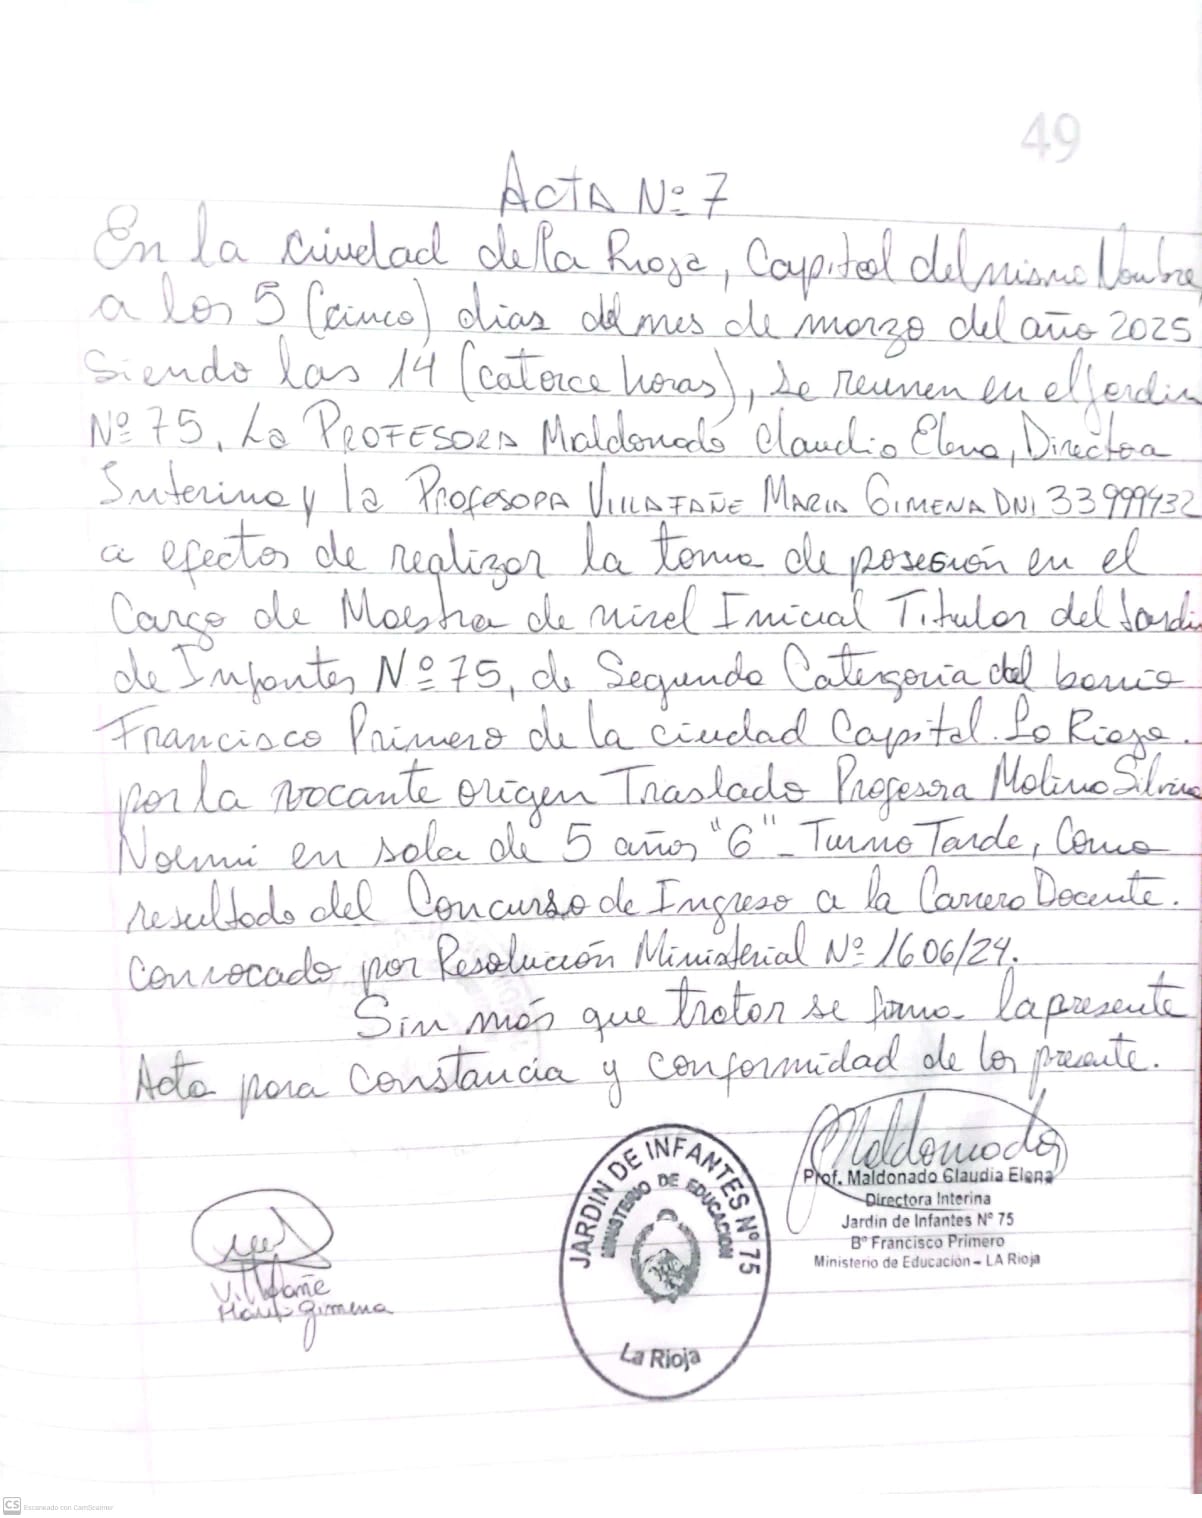 49
Acta Nº 7
En la ciudad de la Rioja, Capital del mismo Nombre
a los 5 (cinco) dias del mes de marzo del año 2025
Siendo las 14 (catorce horas), se reunen en el Jardin
Nº 75, La Profesora Maldonado Claudia Elena, Directora
Interina y la Profesora Villafañe Maria Gimena DNI 33999432
a efectos de realizar la toma de posesión en el
Cargo de Maestra de nivel Inicial Titular del Jardin
de Infantes Nº 75, de Segunda Catergoria del barrio
Francisco Primero de la ciudad Capital. La Rioja.
por la vacante origen Traslado Profesora Molina Silvina
Noemi en sala de 5 años "6" - Turno Tarde, Como
resultado del Concurso de Ingreso a la Carrera Docente.
convocado por Resolución Ministerial Nº 1606/24.
Sin más que tratar se firma la presente
Acta para constancia y conformidad de los presente.
Maldonado
Prof. Maldonado Claudia Elena
Directora Interina
Jardin de Infantes Nº 75
Bº Francisco Primero
Ministerio de Educación – LA Rioja
JARDIN DE INFANTES Nº 75
MINISTERIO DE EDUCACION
La Rioja
Villafañe
Maria Gimena
CS Escaneado con CamScanner